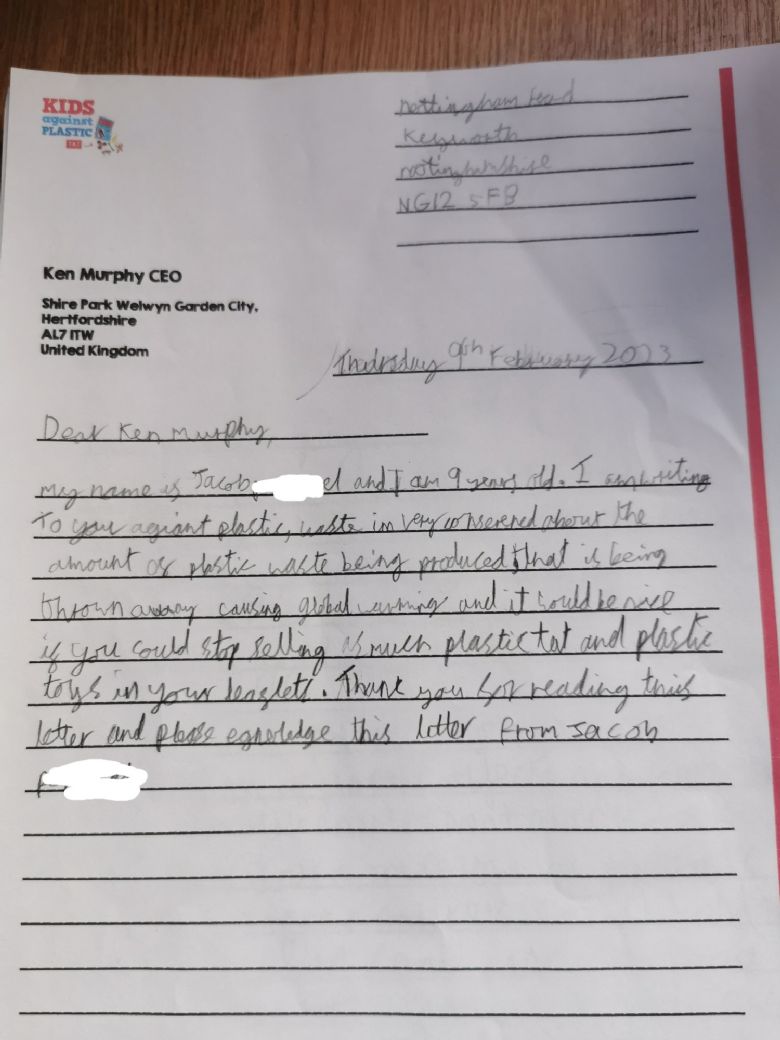 KIDS
against
PLASTIC
Nottingham Road
Keyworth
Nottinghamshire
NG12 5FB
Ken Murphy CEO
Shire Park Welwyn Garden City,
Hertfordshire
AL7 1TW
United Kingdom
Thudrsday 9th February 2023
Dear Ken Murphy,
my name is Jacob el and I am 9 years old. I am writing
to you agiant plastic, waste im very conserened about the
amount of plastic waste being produced that is being
thrown away causing global warming and it would be nice
if you could stop selling as much plastic tat and plastic
toys in your leaglets. Thank you for reading this
letter and please egnoledge this letter from Jacob